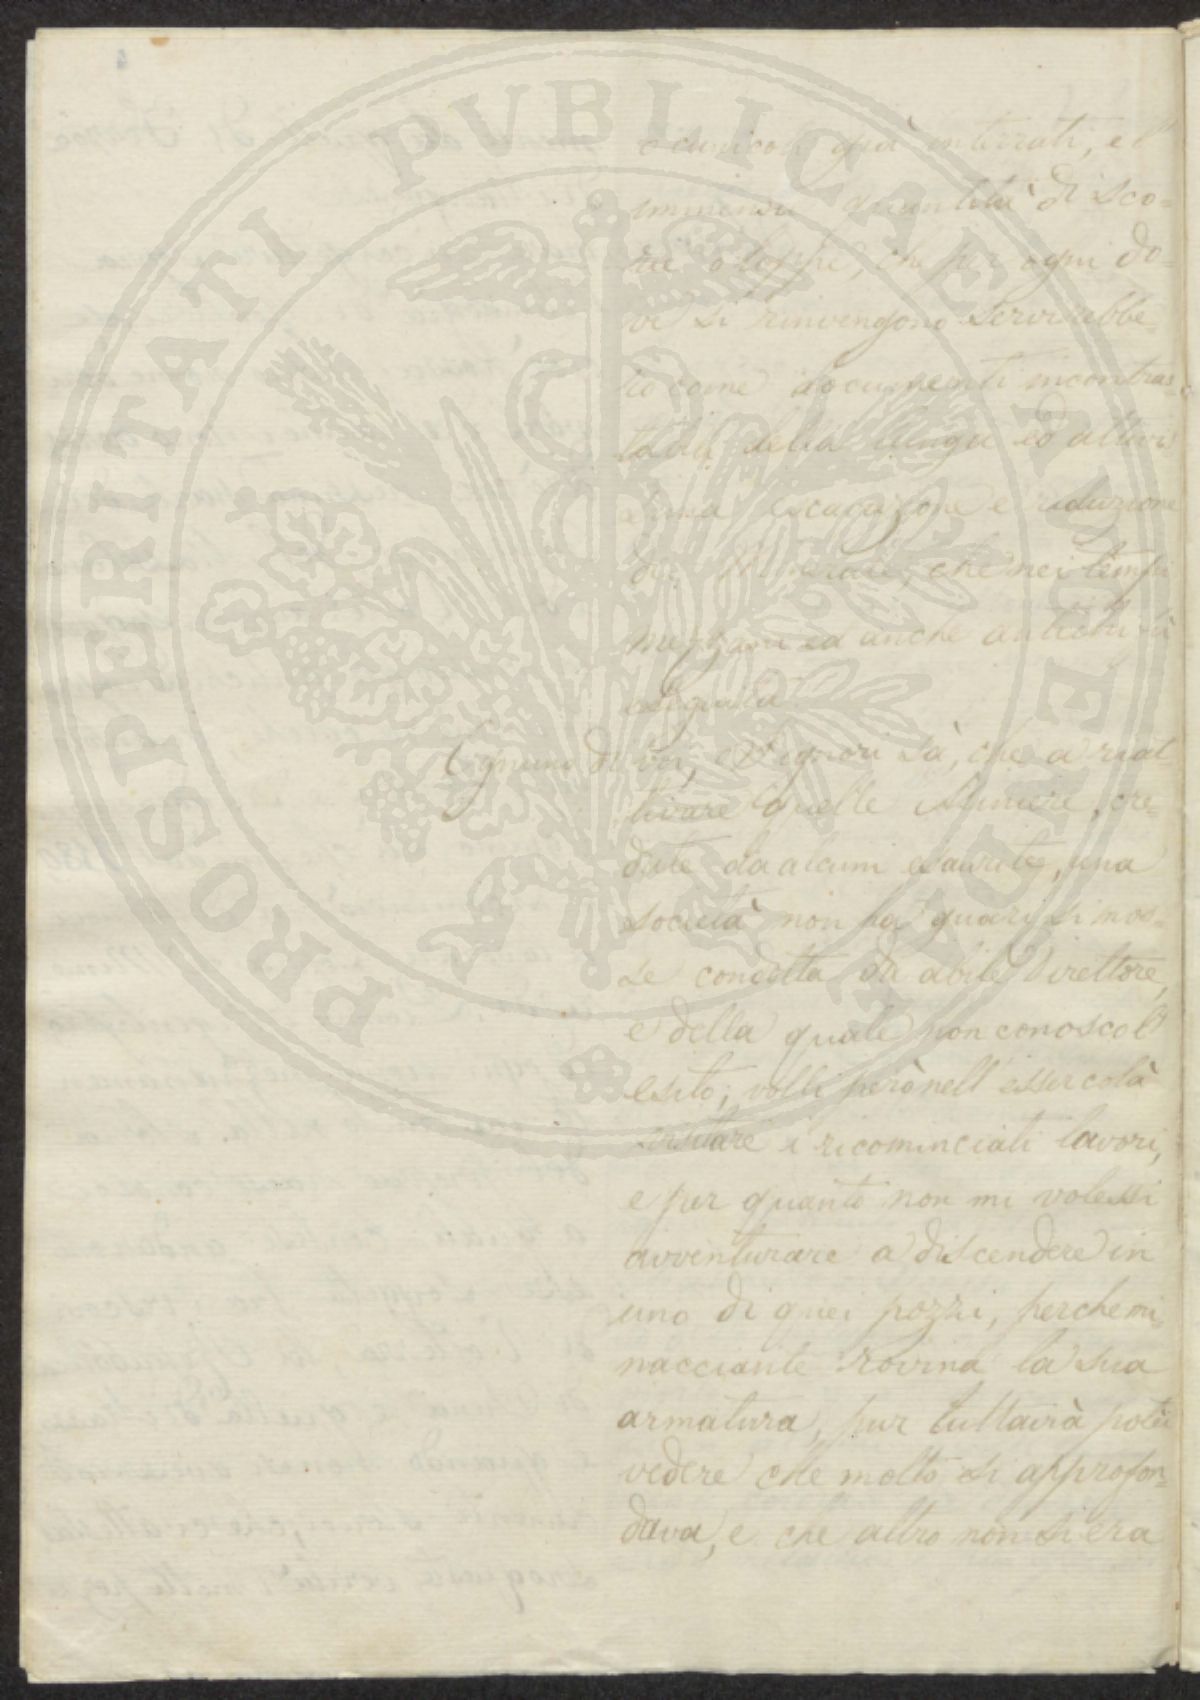 e cunicoli già interrati, e l'
immensa quantità di sco-
rie o loppe, che per ogni do-
ve si rinvengono servirebbe-
ro come documenti incontras-
tabili della lunga ed attivis
sima escavazione e riduzione
di Minerale, che nei tempi
mezzani ed anche antichi si è
eseguita.
Ognuno di voi, o Signori sà, che a riat
tivare quelle Miniere, cre-
dute da alcuni esaurite, una
società non ha guari si mos-
se condotta da abile Direttore,
e della quale non conosco l'
esito; volli però nell'esser colà
visitare i ricominciati lavori,
e per quanto non mi volessi
avventurare a discendere in
uno di quei pozzi, perche mi-
nacciante rovina la sua
armatura, pur tuttavia potei
vedere che molto si approfon-
dava, e che altro non si era
PROSPERITATI PUBLICAE AUGENDAE